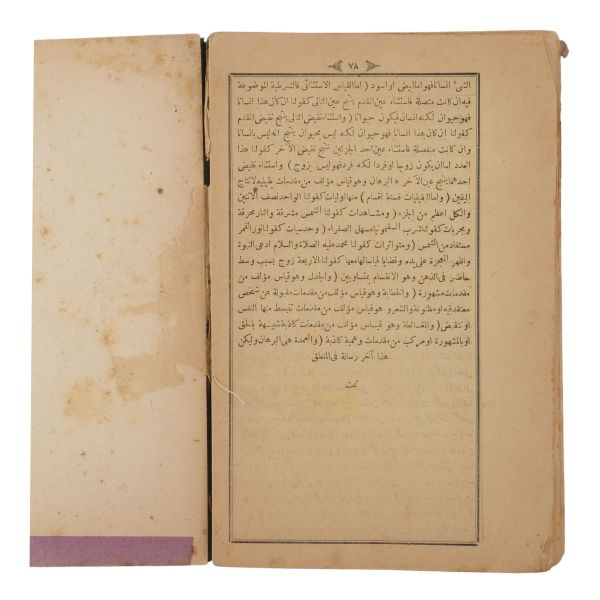 ٧٨
الشئ انسانا فهو اما ابيض او اسود ( اما القياس الاستثنائى فالشرطية الموضوعة
فيه ان كانت متصلة فاستثناء عين المقدم ينتج عين التالى كقولنا ان كان هذا انسانا
فهو حيوان لكنه انسان فيكون حيوانا ( واستثناء نقيض التالى ينتج نقيض المقدم
كقولنا ان كان هذا انسانا فهو حيوان لكنه ليس بحيوان ينتج انه ليس بانسان
وان كانت منفصلة فاستثناء عين احد الجزئين ينتج نقيض الآخر كقولنا هذا
العدد اما ان يكون زوجا او فردا لكنه فرد فهو ليس بزوج ( واستثناء نقيض
احدهما ينتج عين الآخر * البرهان وهو قياس مؤلف من مقدمات يقينية لانتاج
اليقين ( واما اليقينيات فستة اقسام ( منها اوليات كقولنا الواحد نصف الاثنين
والكل اعظم من الجزء ( ومشاهدات كقولنا الشمس مشرقة والنار محرقة
ومجربات كقولنا شرب السقمونيا مسهل الصفراء ( وحدسيات كقولنا نور القمر
مستفاد من الشمس ( ومتواترات كقولنا محمد عليه الصلاة والسلام ادعى النبوة
واظهر المعجزة على يده وقضايا قياساتها معها كقولنا الاربعة زوج بسبب وسط
حاضر فى الذهن وهو الانقسام بمتساويين ( والجدل وهو قياس مؤلف من
مقدمات مشهورة ( والخطابة وهو قياس مؤلف من مقدمات مقبولة عن شخص
معتقد فيه او مظنونة والشعر وهو قياس مؤلف من مقدمات تنبسط منها النفس
او تنقبض ( والمغالطة وهو قياس مؤلف من مقدمات كاذبة شبيهة بالحق
او بالمشهورة او مركب من مقدمات وهمية كاذبة ( والعمدة هى البرهان وليكن
هذا آخر رسالة فى المنطق
تمت